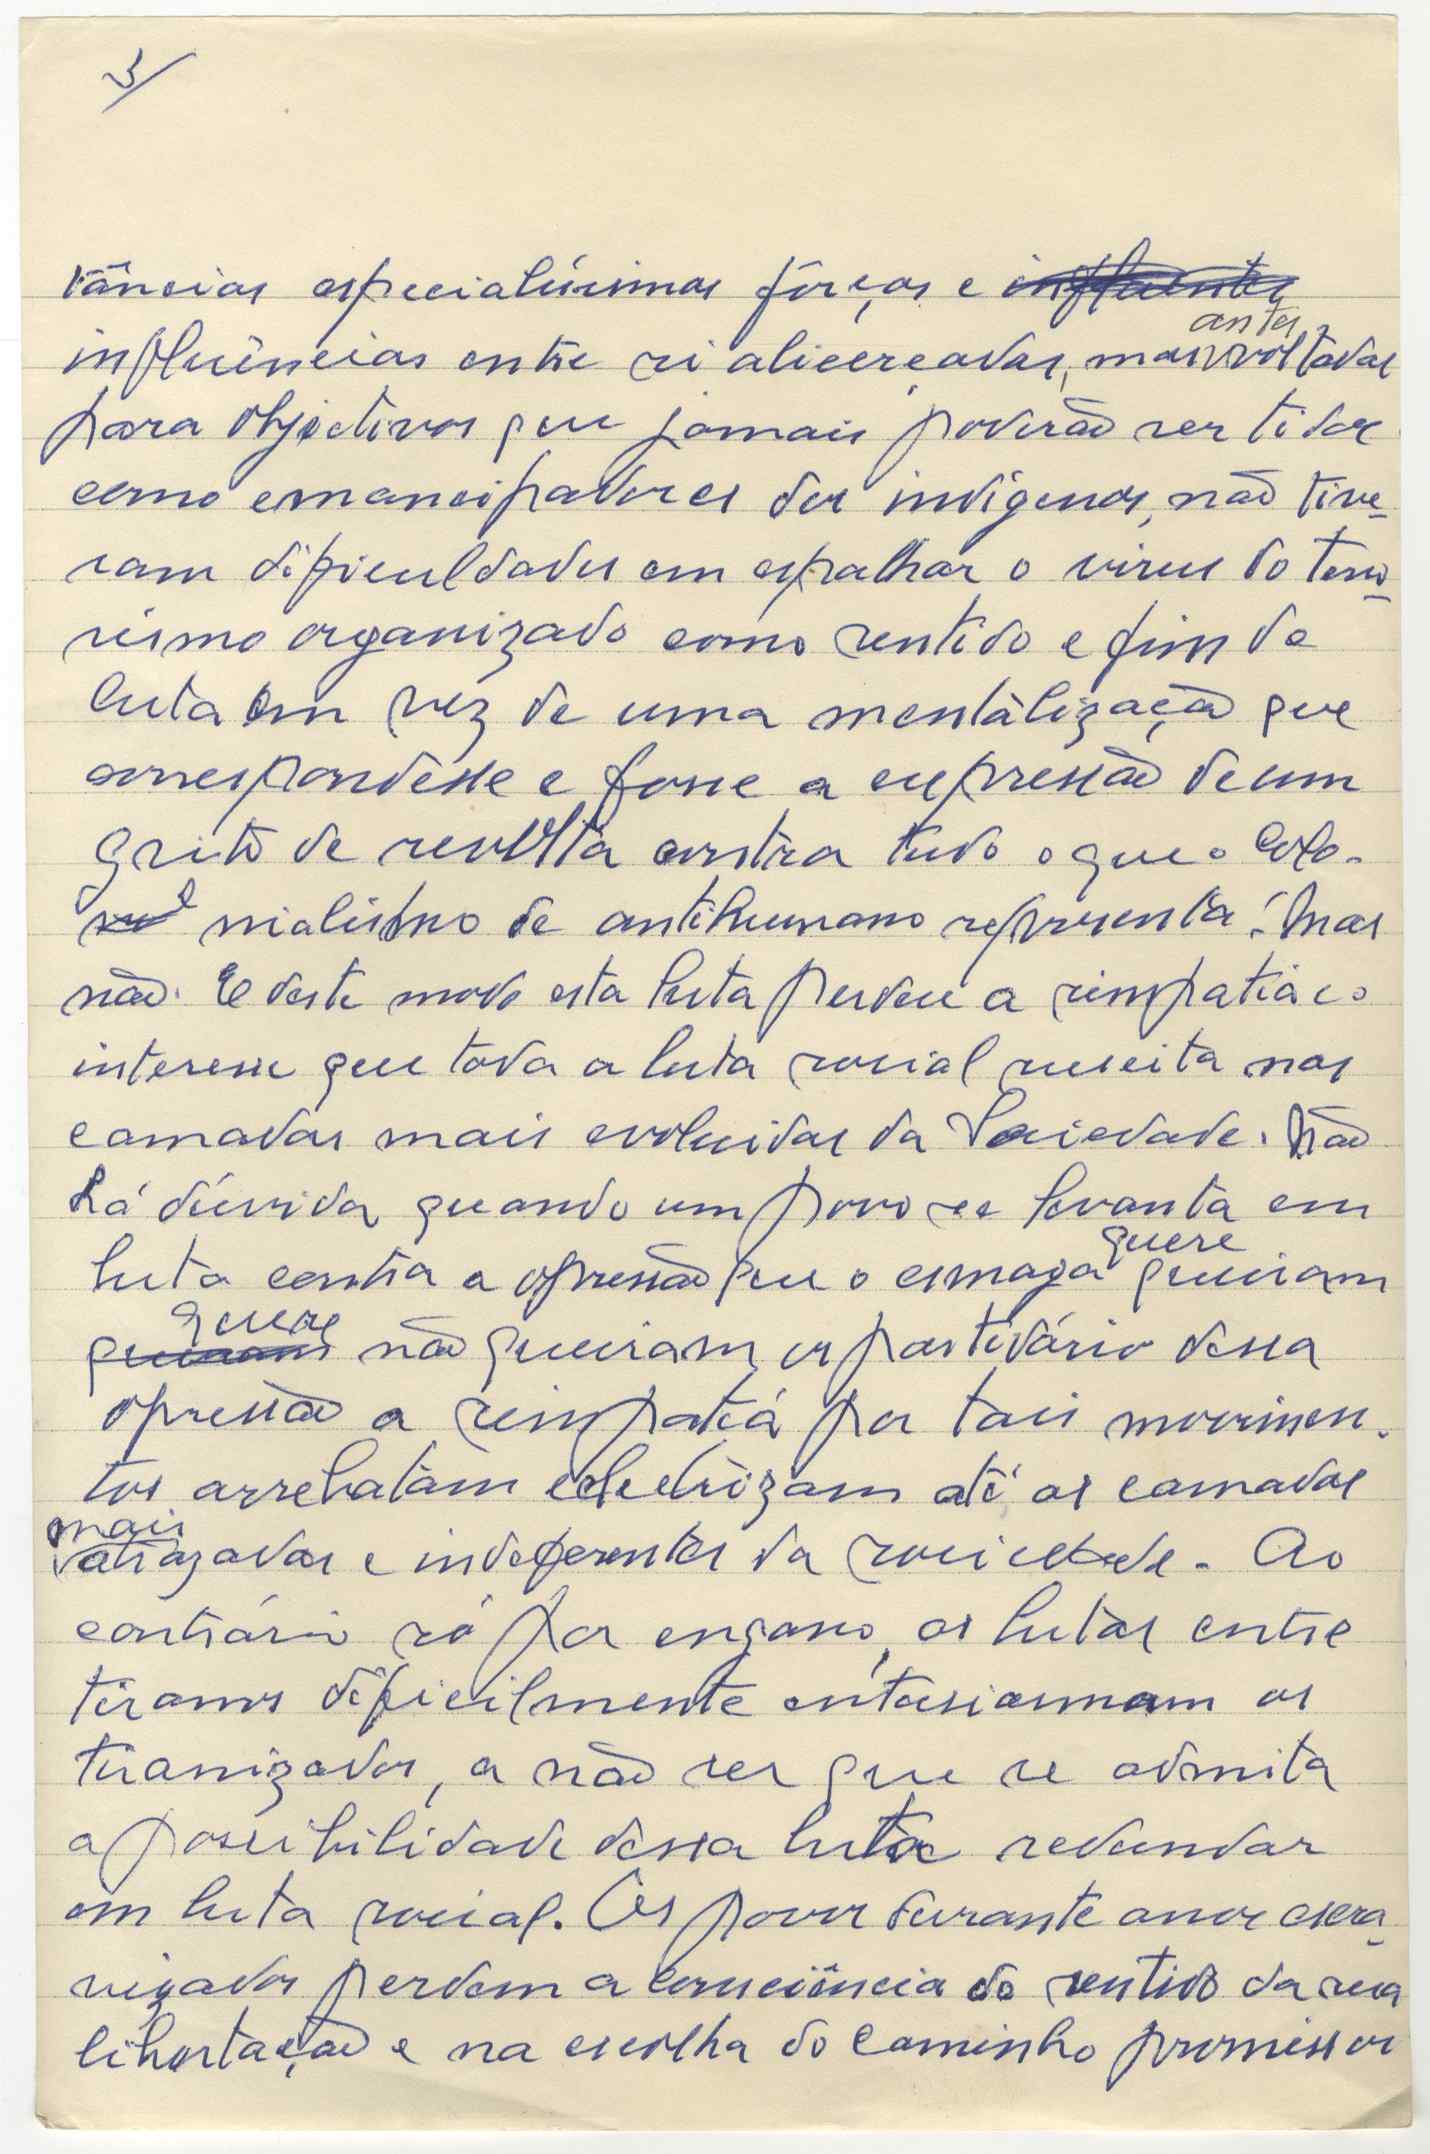 3/
tâncias especialíssimas fôrças e influentes
antes
influências entre si alicerçadas, mas voltadas
para objectivos que jamais poderão ser tidos
como emancipadores dos indígenas, não tive-
ram dificuldades em espalhar o virus do terro-
rismo organizado como sentido e fim da
luta em vez de uma mentalização que
correspondesse e fosse a expressão de um
grito de revolta contra tudo o que o Colo-
nialismo de antihumano representa! Mas
não. E deste modo esta luta perdeu a simpatia e o
interesse que toda a luta social suscita nas
camadas mais evoluidas da Sociedade. Não
há dúvida, quando um povo se levanta em
quere
luta contra a opressão que o esmaga queiram
quere
queiram não queiram os partidário dessa
opressão a simpatiá por tais movimen-
tos arrebatam electrizam até as camadas
mais
atrazadas e indeferentes da sociedade. Ao
contrário só por engano, as lutas entre
tiranos dificilmente entusiasmam os
tiranizados, a não ser que se admita
a possibilidade dessa luta redundar
em luta social. Os povos durante anos escra-
vizados perdem a consciência do sentido da sua
libertação e na escolha do caminho promissor